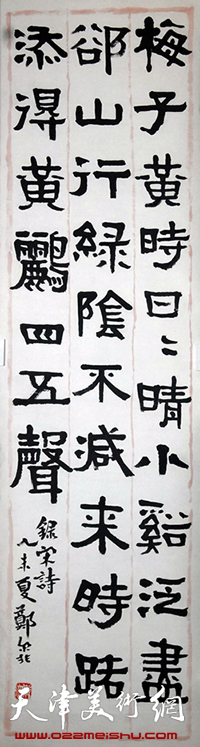 梅子黃時日〻晴小谿泛盡
郤山行綠陰不減来時路
添得黃鸝四五聲
錄宋詩
夏鄭
天津美術網
www.022meishu.com